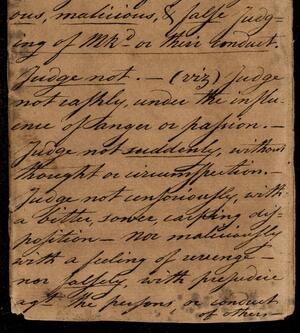 ous, malicious, & false judg-
ing of Mkd or their conduct.
Judge not. — (viz) Judge
not rashly, under the influ-
ence of anger or passion. —
Judge not suddenly, without
thought or circumspection. —
Judge not censoriously, with
a bitter, sower carping dis-
position — nor maliciously
with a feeling of revenge —
nor falsely, with prejudice
agt the persons, or conduct
of others —